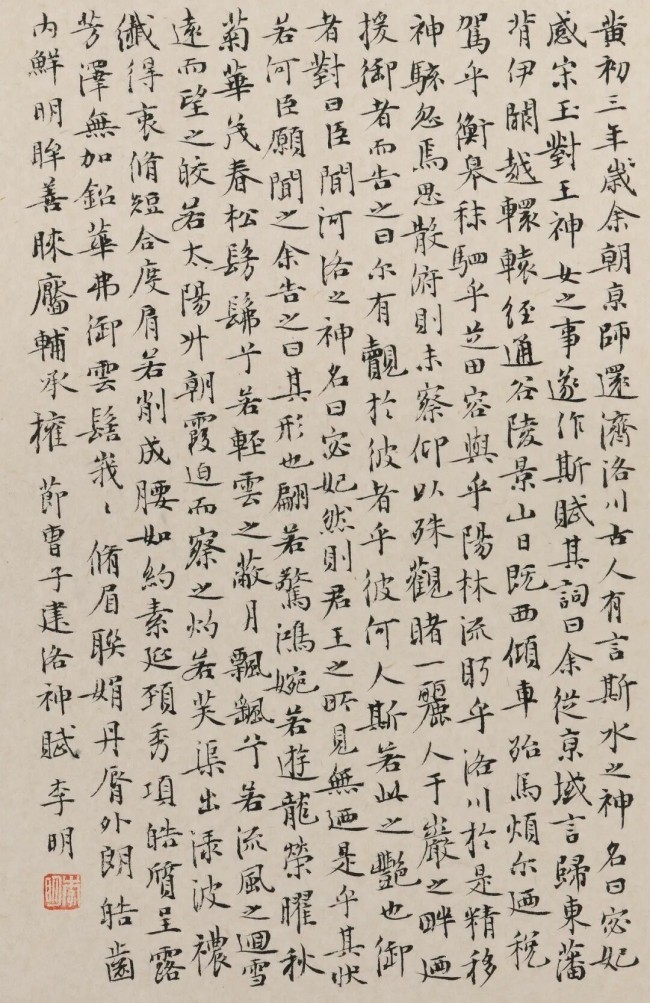 黄初三年歲余朝京師還濟洛川古人有言斯水之神名曰宓妃
感宋玉對王神女之事遂作斯賦其詞曰余從京域言歸東藩
背伊闕越轘轅經通谷陵景山日既西傾車殆馬煩尔迺税
駕乎衡皋秣駟乎芝田容與乎陽林流眄乎洛川於是精移
神駭忽焉思散俯則未察仰以殊觀睹一麗人于巖之畔迺
援御者而告之曰尔有覿於彼者乎彼何人斯若此之艷也御
者對曰臣聞河洛之神名曰宓妃然則君王之所見無迺是乎其狀
若何臣願聞之余告之曰其形也翩若驚鴻婉若遊龍榮曜秋
菊華茂春松髣髴兮若輕雲之蔽月飄飖兮若流風之迴雪
遠而望之皎若太陽升朝霞迫而察之灼若芙渠出淥波襛
纖得衷脩短合度肩若削成腰如約素延頸秀項皓質呈露
芳澤無加鉛華弗御雲髻峩〻脩眉聯娟丹脣外朗皓齒
内鮮明眸善睞靨輔承權 節曹子建洛神賦 李明
李明